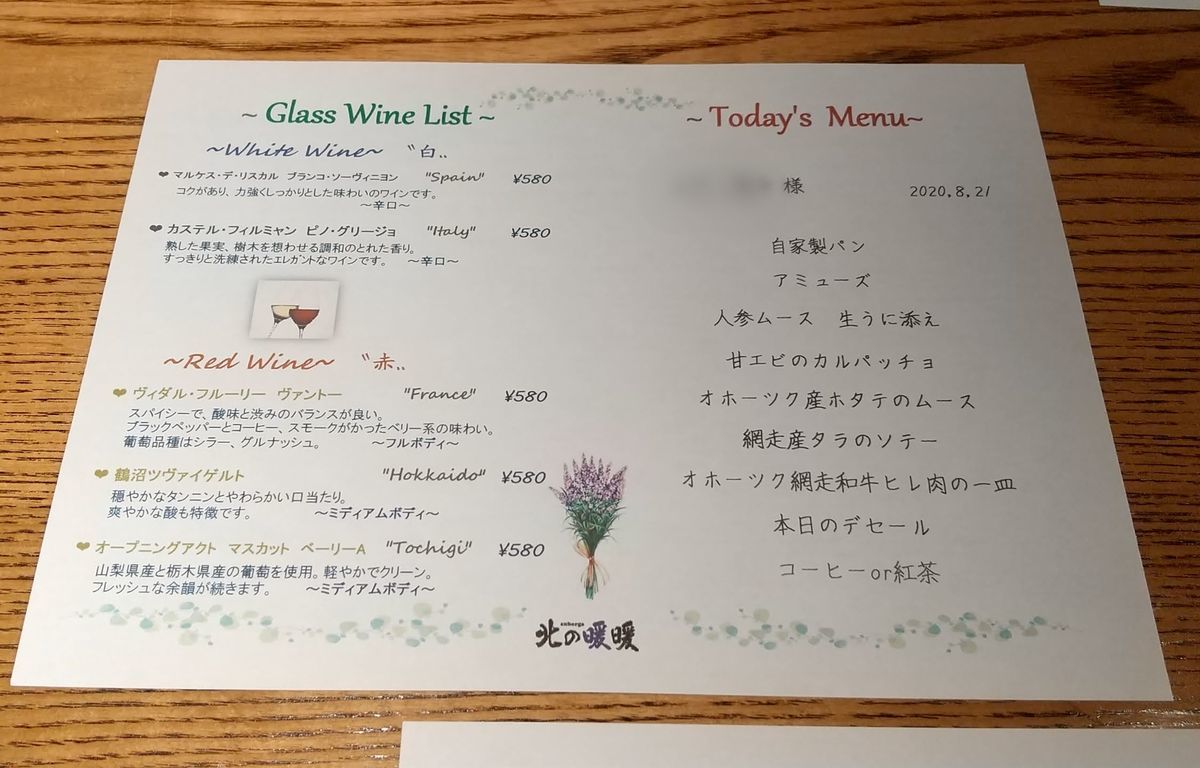 ~ Glass Wine List ~
~White Wine~ 〝白〟
❤ マルケス・デ・リスカル ブランコ・ソーヴィニヨン "Spain" ¥580
コクがあり、力強くしっかりとした味わいのワインです。
～辛口～
❤ カステル・フィルミャン ピノ・グリージョ "Italy" ¥580
熟した果実、樹木を想わせる調和のとれた香り。
すっきりと洗練されたエレガントなワインです。 ～辛口～
~Red Wine~ 〝赤〟
❤ ヴィダル・フルーリー ヴァントー "France" ¥580
スパイシーで、酸味と渋みのバランスが良い。
ブラックペッパーとコーヒー、スモークがかったベリー系の味わい。
葡萄品種はシラー、グルナッシュ。 ～フルボディ～
❤ 鶴沼ツヴァイゲルト "Hokkaido" ¥580
穏やかなタンニンとやわらかい口当たり。
爽やかな酸も特徴です。 ～ミディアムボディ～
❤ オープニングアクト マスカット ベーリーA "Tochigi" ¥580
山梨県産と栃木県産の葡萄を使用。軽やかでクリーン。
フレッシュな余韻が続きます。 ～ミディアムボディ～
auberge
北の暖暖
~ Today's Menu~
様
2020,8,21
自家製パン
アミューズ
人参ムース 生うに添え
甘エビのカルパッチョ
オホーツク産ホタテのムース
網走産タラのソテー
オホーツク網走和牛ヒレ肉の一皿
本日のデセール
コーヒーor紅茶